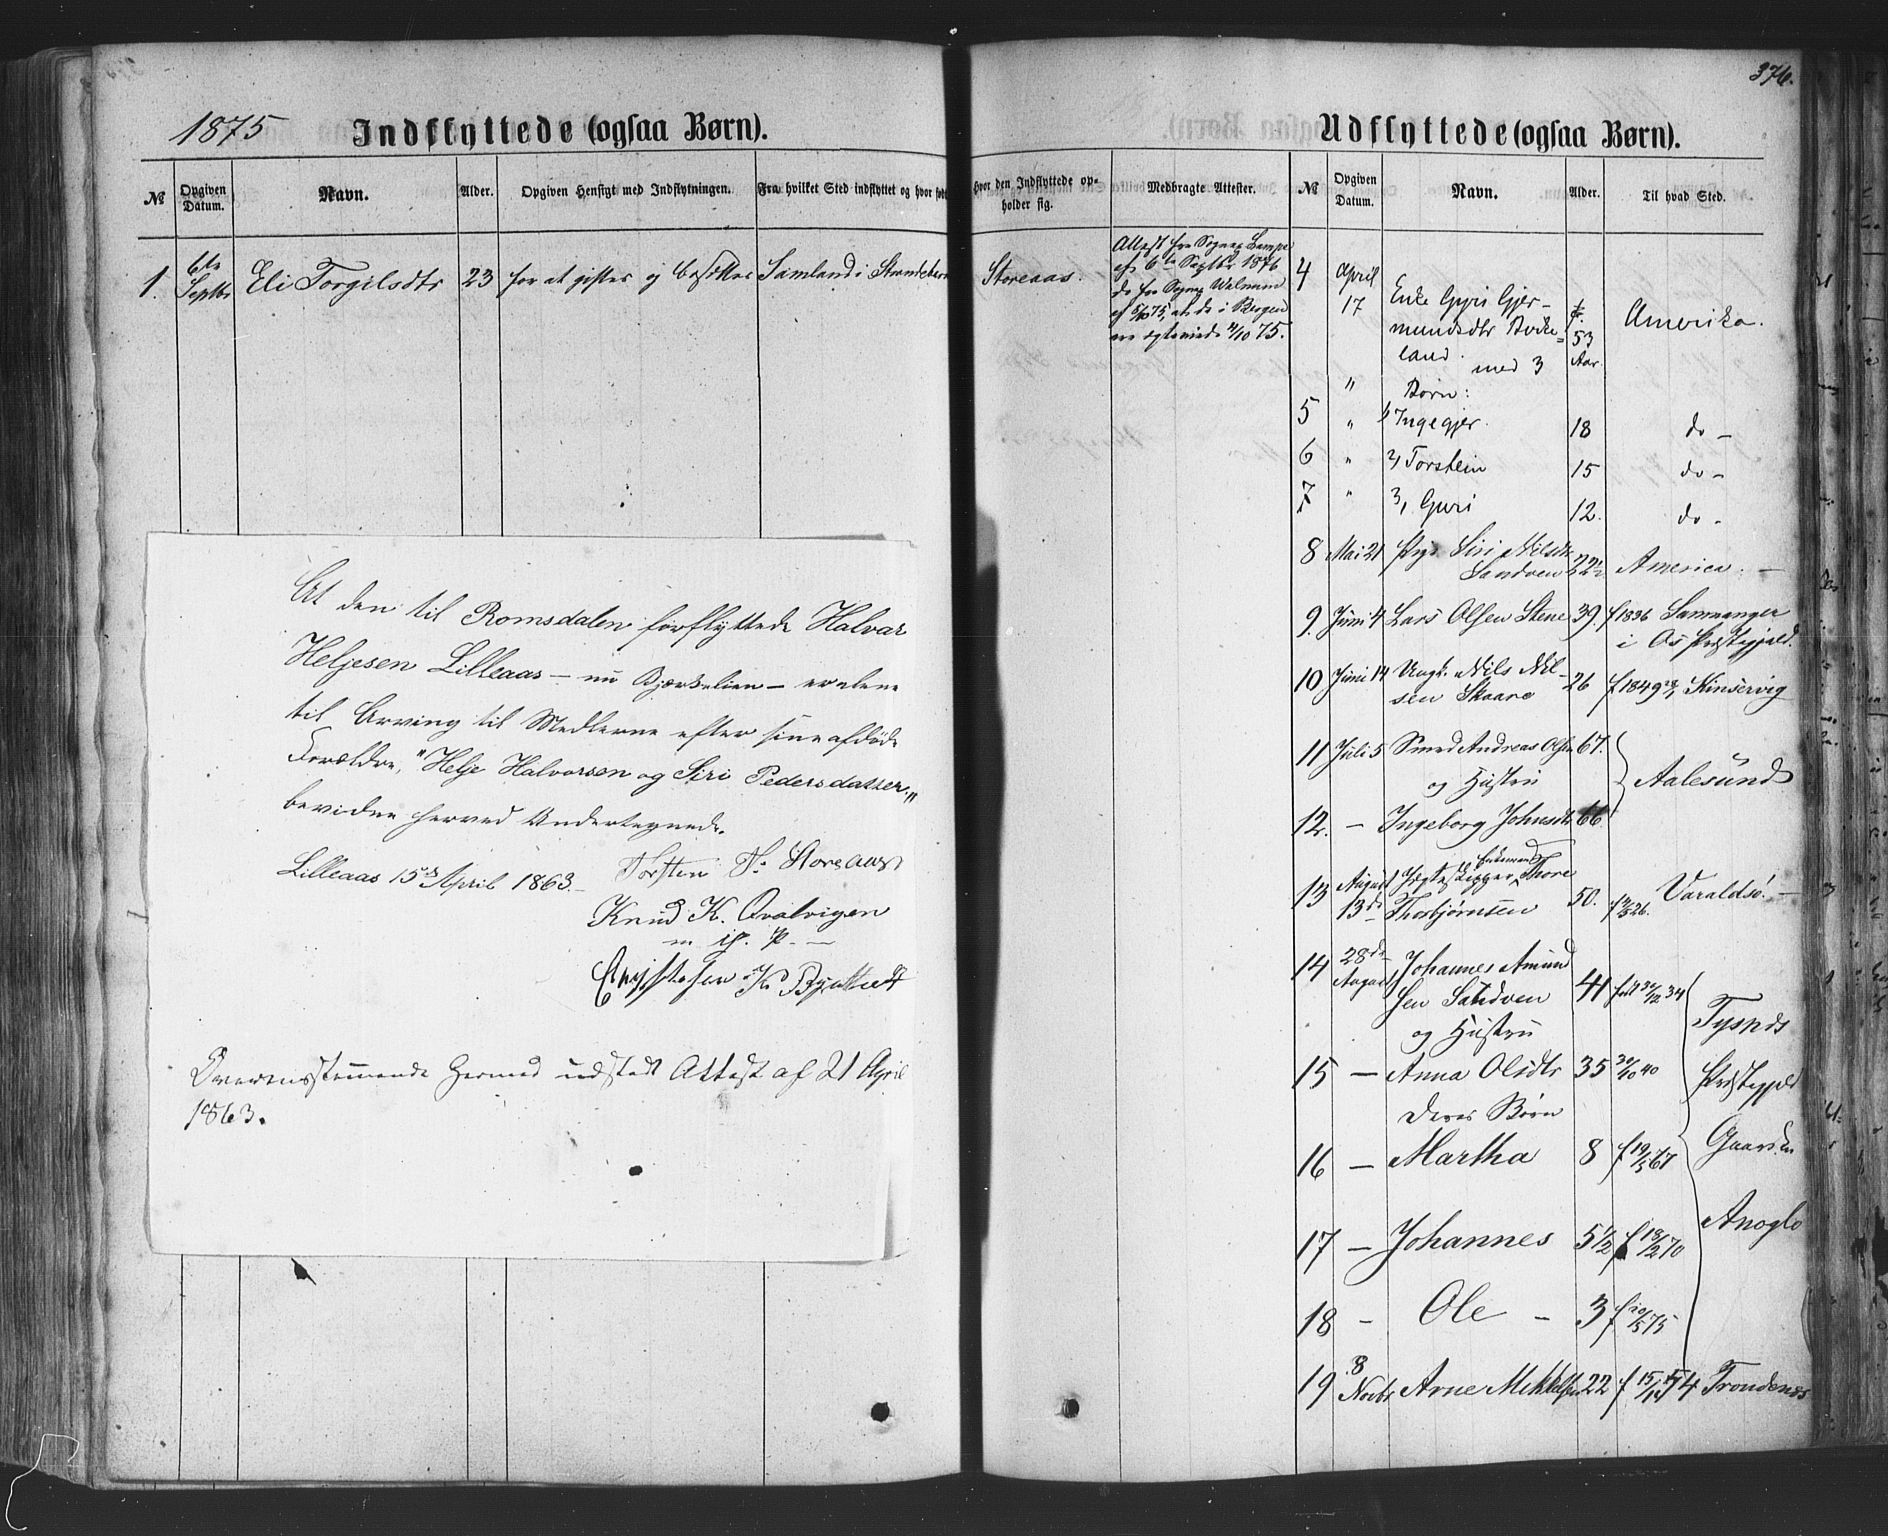 376.
1875 Indflyttede (ogsaa Børn).
№ Opgiven Datum. Navn. Alder. Opgiven Hensigt med Indflytningen. Fra hvilket Sted indflyttet og hvor født
1. 6te Septbr Eli Torgilsdtr 23 for at giftes og bosættes Samland i Strandebarm
At den til Romsdalen forflyttede Halvar
Heljesen Lilleaas – nu Bjørkelien – er alene
til Arving til Medlerne efter sine afdøde
Forældre, "Helje Halvorsen og Siri Pedersdatter"
bevidne herved Undertegnede.
Lilleaas 15de April 1863.
Torsten T. Storeaas
Knud K. Qvalvigen
m. p. P.
K. Byttvedt
Overensstemmende hermed udstedt Attest af 21 April
1863.
Udflyttede (ogsaa Børn).
Hvor den Indflyttede opholder sig. Medbragte Attester. № Opgiven Datum. Navn. Alder. Til hvad Sted.
Storeaas.
Attest fra Sognep. Lampe
af 6te Septbr 1876
do fra Sognep.
af 75, at de i Bergen
ere ægteviede 11/10 75.
4 April 17 Enke Gyri Gjer-
mundsdtr
land. 53 Aar. Amerika.
med 3
" Børn:
5 " 1, Ingegjer. 18 do –
6 " 2, Torstein 15 do –
7 " 3, Guri 12. do –
8 Mai 21 Pige Siri Nilsdtr
Sandven 22½ America. –
9. Juni 4 Lars Olsen Stene 39. f 1836 Samnanger
i Os Præstegjæld.
10 Juni 14 Ungk. Nils Nil-
sen Skaare 26 f 1849 Kinservig
11 Juli 5 Smed Andreas Olsen 67.
og Hustru Aalesund
12. – Ingeborg Johnsdtr 66
13 August 13de Jægteskipper Enkemand Thore
Thorbjørnsen 50. f 26. Varaldsø. –
14 28de August Johannes Amund
sen Sandven 41 født 34 Tysnes
og Hustru
15 – Anna Olsdtr 35 30/10 40 Præstegjeld
Deres Børn
16 – Martha 8 f 19/5 67 Gaarden
17 – Johannes 5½ f 18/2 70 Anoglo
18 – Ole – 3 f 20/5 75
19 8 Novbr Arne Mikkelsen 22 f 54 Trondenes